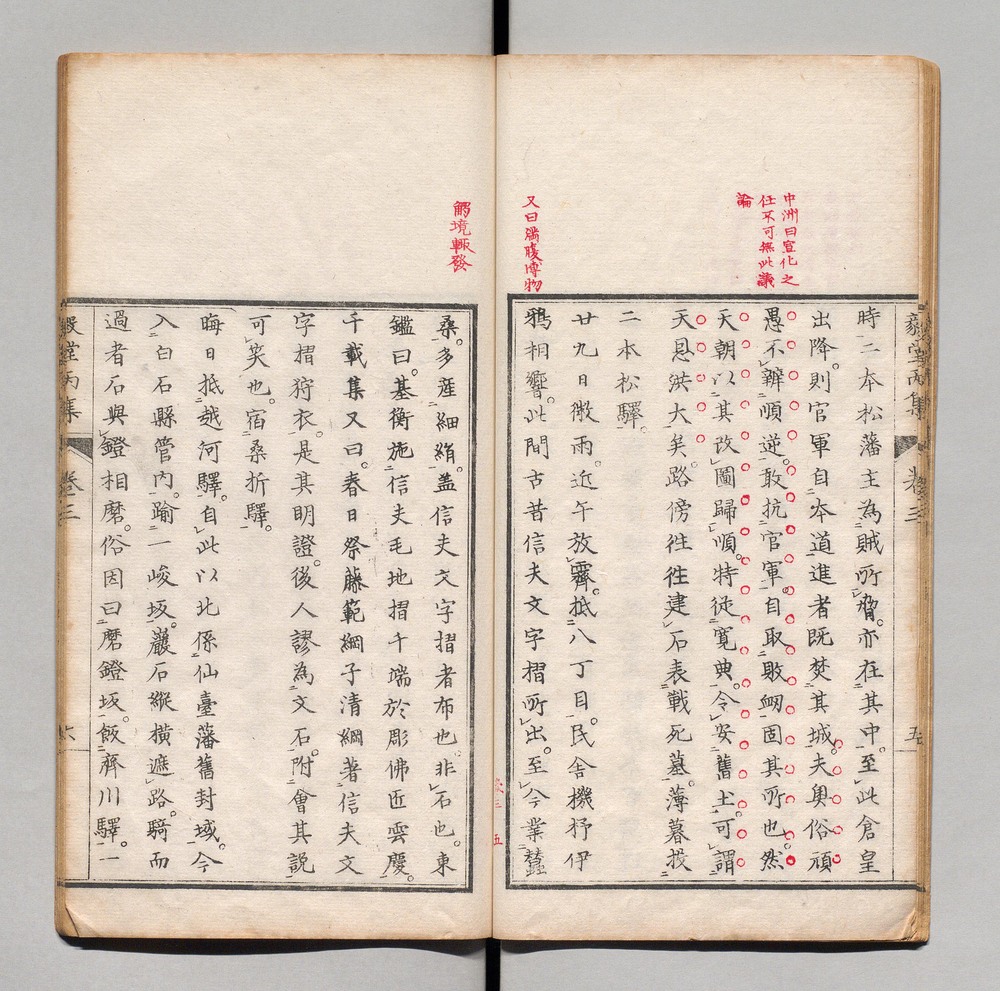 中洲曰宣化之
任不可無此議
論
時二本松藩主為賊所脅亦在其中至此倉皇
出降則官軍自本道進者既焚其城夫奥俗頑
愚不辨順逆敢抗官軍自取敗衂固其所也然
天朝以其改圖歸順特從寛典令安舊土可謂
天恩洪大矣路傍往往建石表戰死墓薄暮投
二本松驛
廿九日微雨近午放霽抵八丁目民舎機杼伊
鴉相響此間古昔信夫文字摺所出至今業蠶
又曰滿腹博物
毅堂丙集
卷三
五
觸境輙發
桑多産細絹盖信夫文字摺者布也非石也東
鑑曰基衡施信夫毛地摺千端於彫佛匠雲慶
千載集又曰春日祭藤範綱子清綱著信夫文
字摺狩衣是其明證後人謬為文石附會其説
可笑也宿桑折驛
晦日抵越河驛自此以北係仙臺藩舊封域今
入白石縣管内踰一峻坂巖石縱横遮路騎而
過者石與鐙相磨俗因曰磨鐙坂飯齊川驛一
毅堂丙集
卷三
六